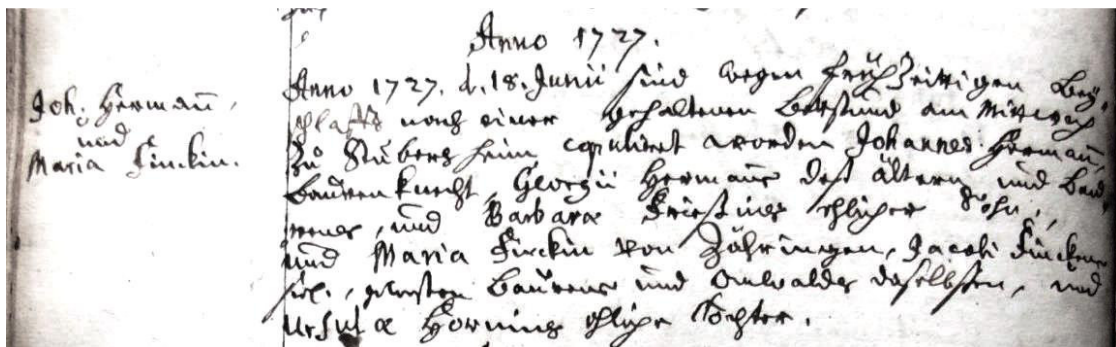 Anno 1727.
Joh. Herman̄,
und
Maria Finckin.
Anno 1727. d. 18. Junii sind wegen früh Zeittigen Bey-
schlaffs nach einer gehaltenen Betstund am Mittwoch
Zu Stubersheim copuliert worden Johannes Herman̄,
Baurenknecht, Georgii Hermans deß ältern, und
und Barbaræ ehlicher Sohn,
und Maria Finckin von Zähringen, Jacobi Finckens
sel., gewesten Baurens und Anwalds daselbsten, und
Ursulæ Hornings ehliche Tochter.